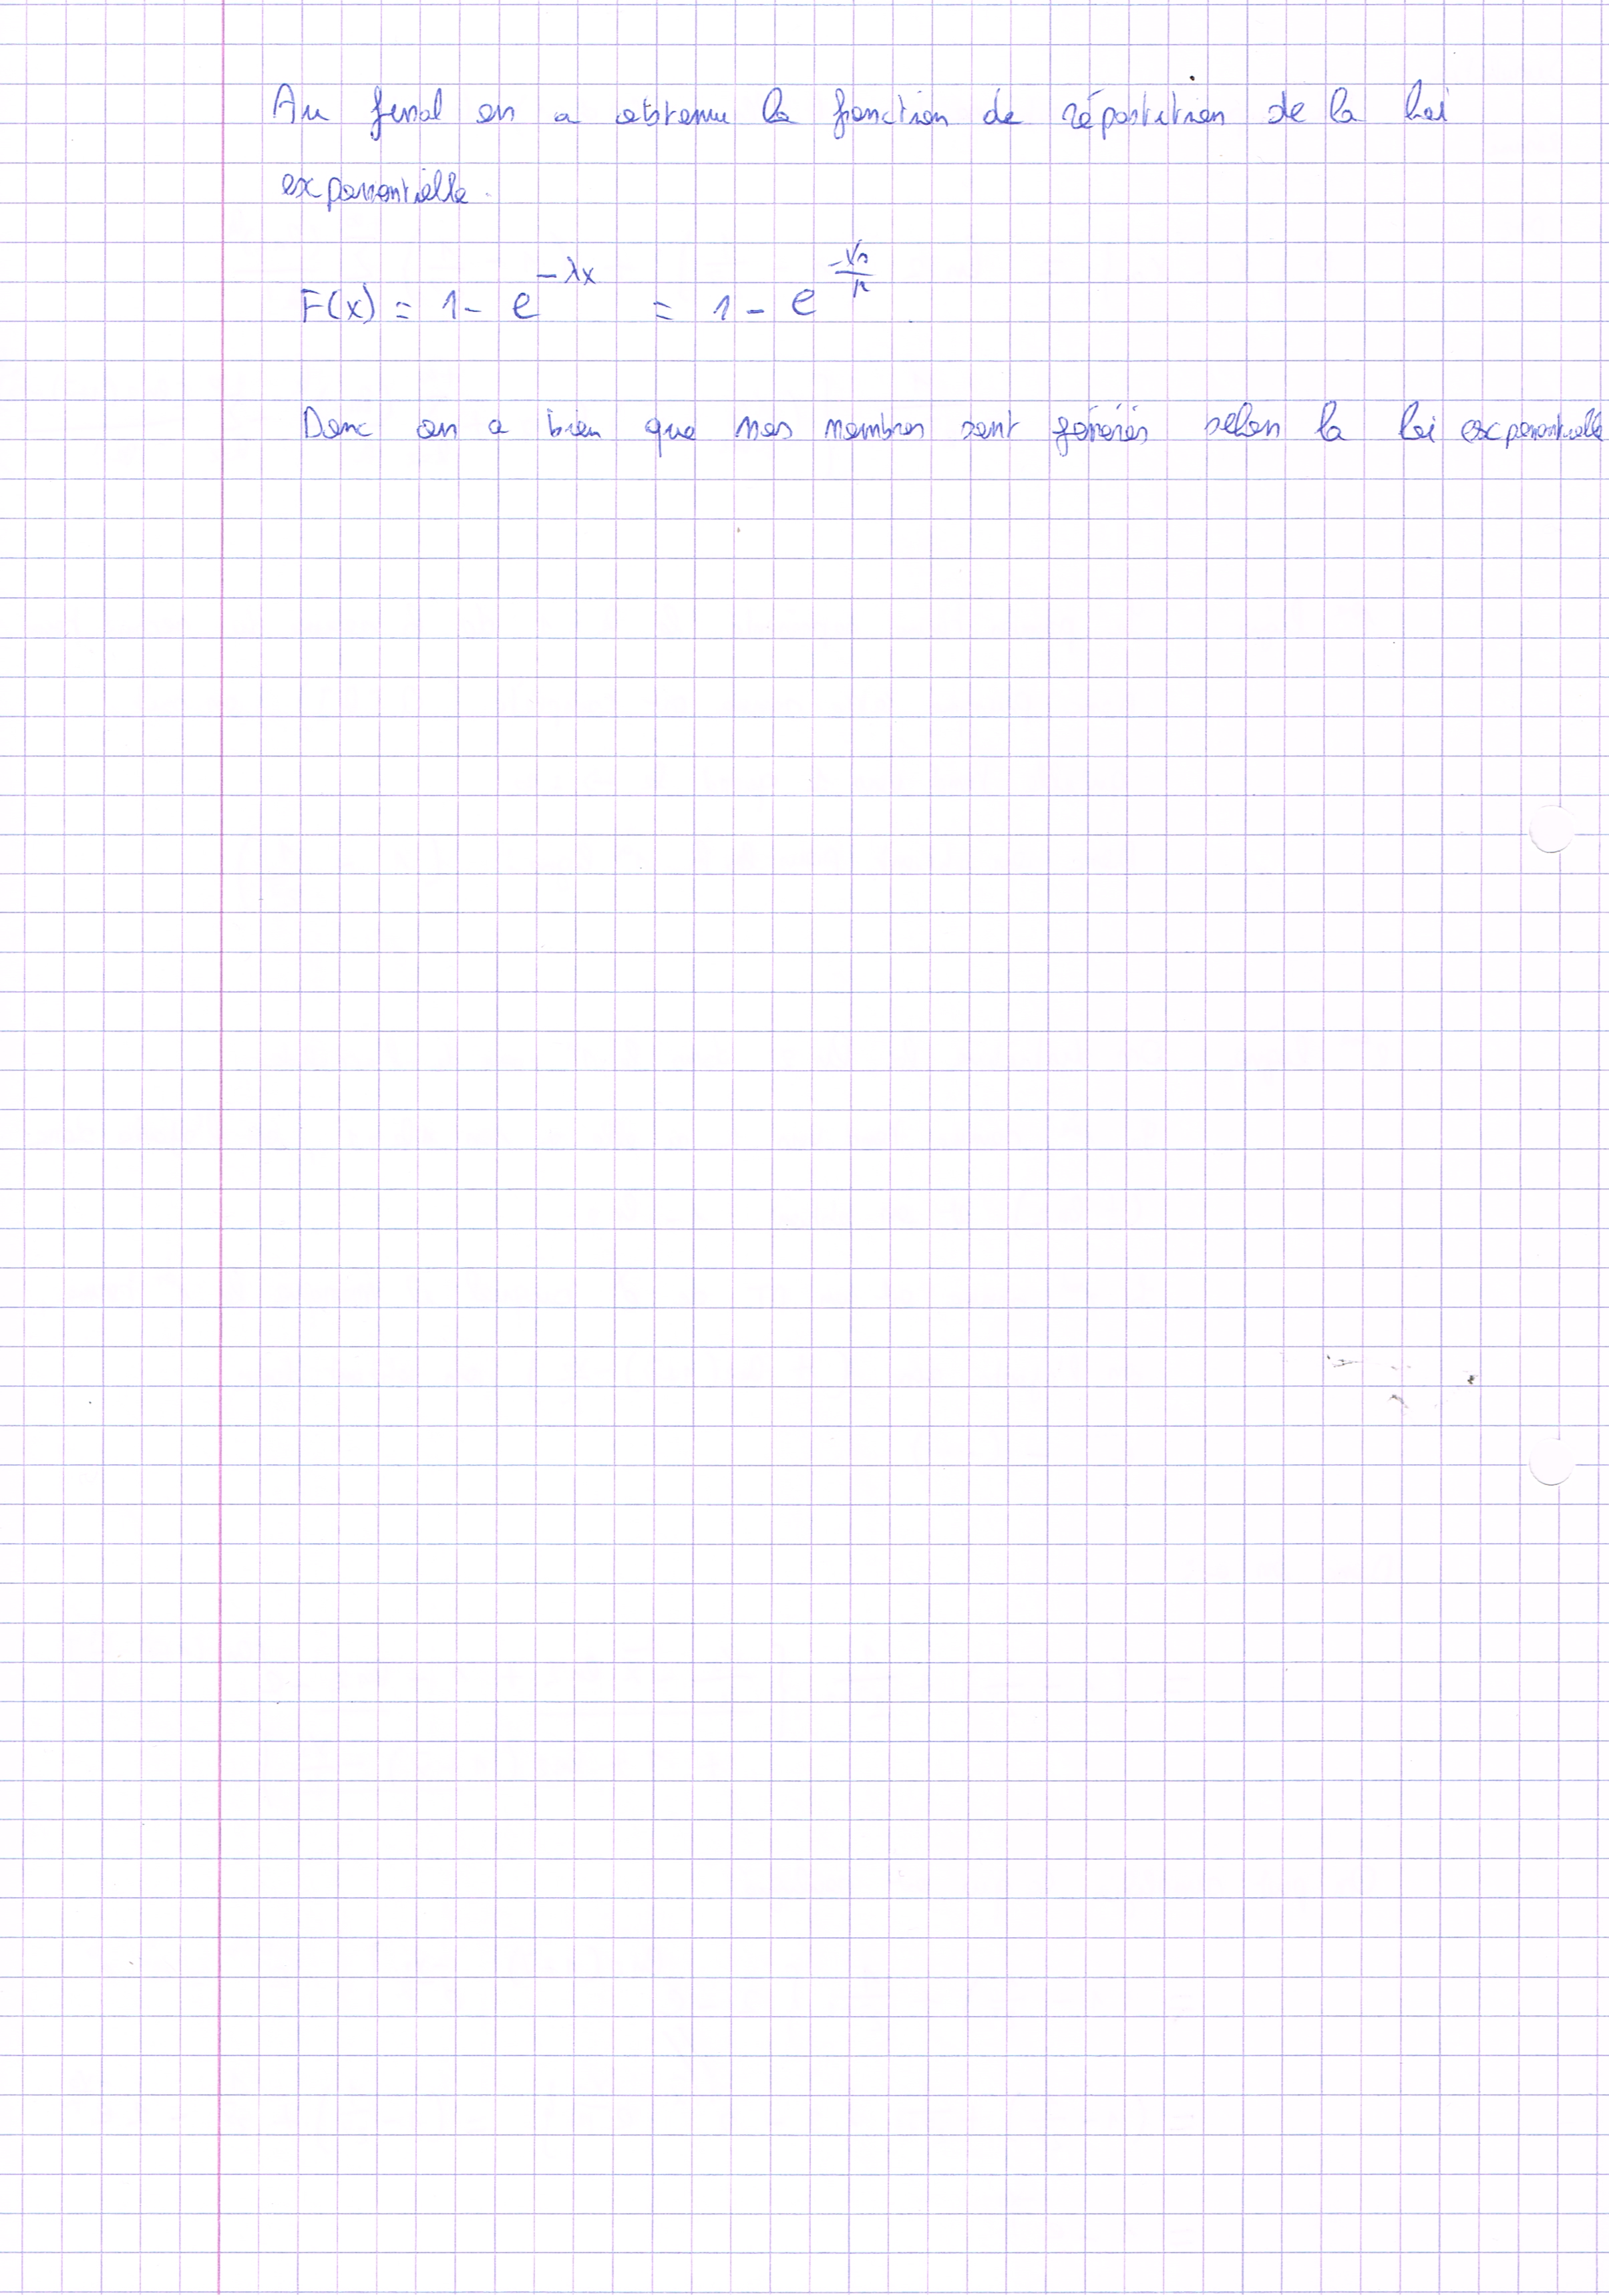 Au final on a obtenu la fonction de répartition de la loi
exponentielle.
F(x) = 1 - e^{-λx} = 1 - e^{\frac{-Vn}{μ}}
Donc on a bien que nos nombres sont générés selon la loi exponentielle